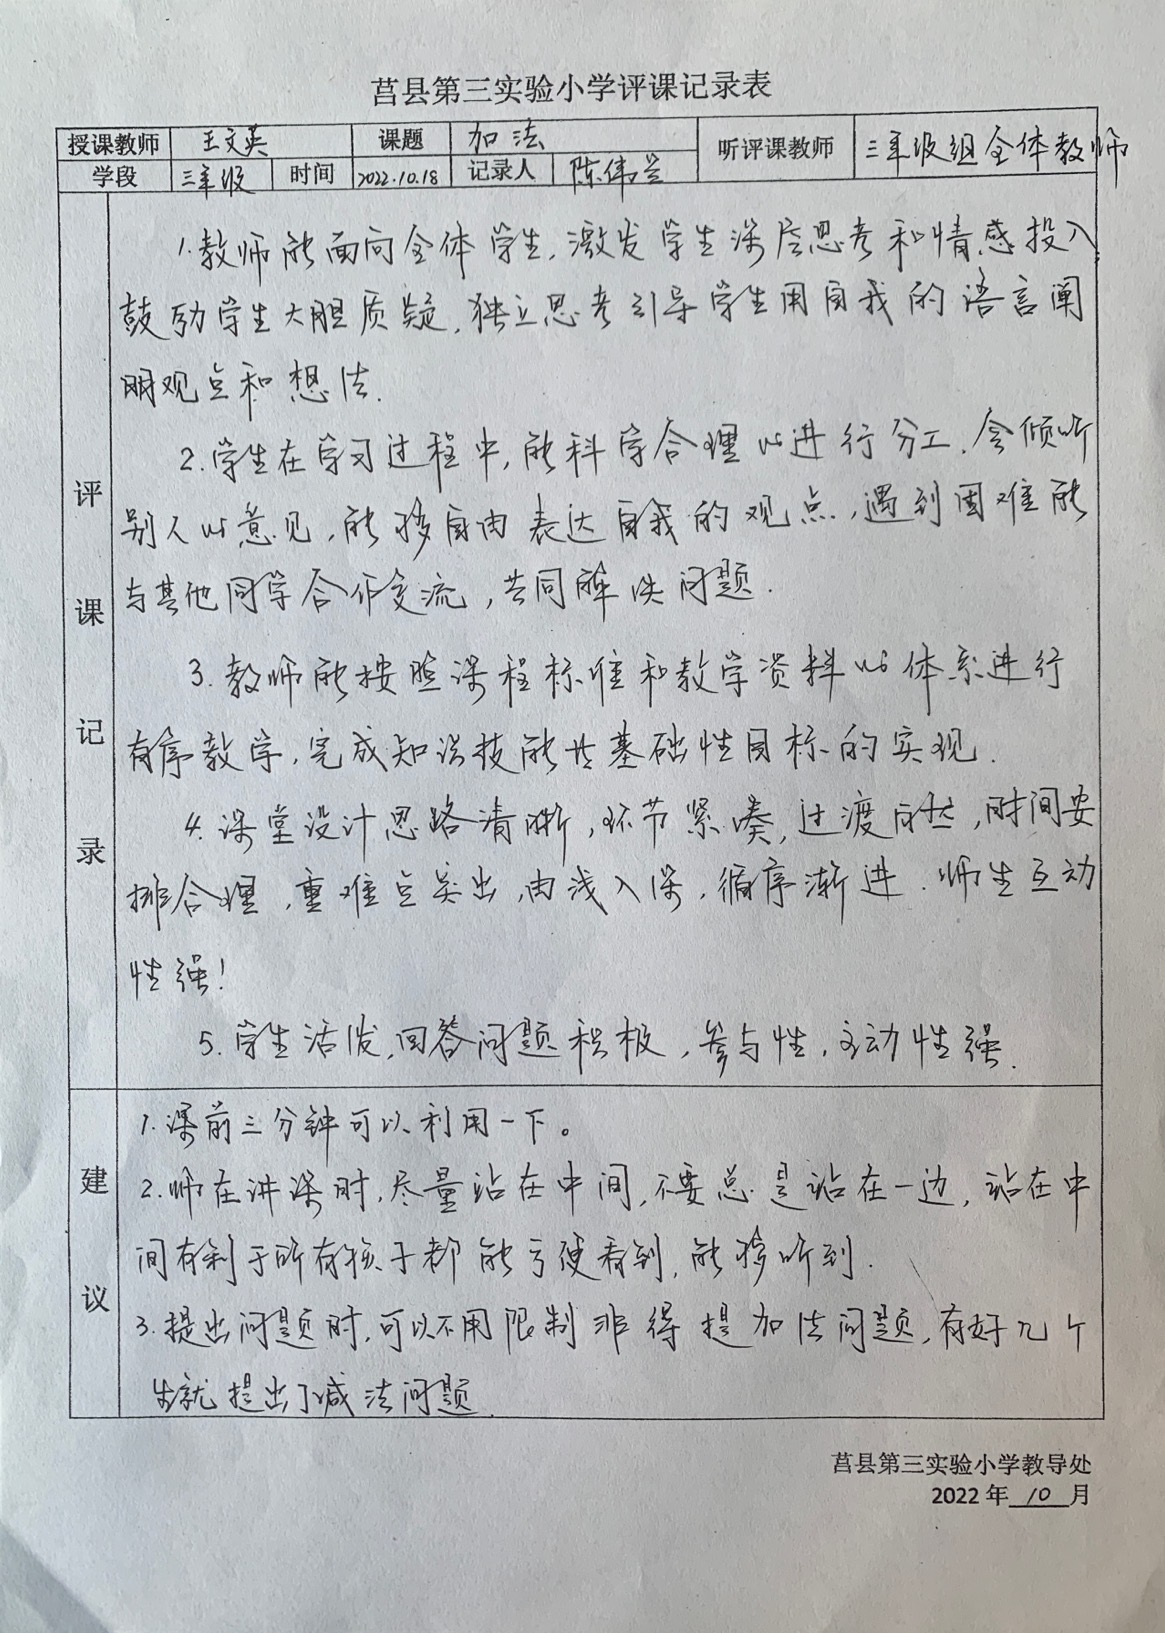 莒县第三实验小学评课记录表
授课教师 王文英 课题 加法 听评课教师 三年级组全体教师
学段 三年级 时间 2022.10.18 记录人 陈伟兰
评课记录
1.教师能面向全体学生,激发学生深层思考和情感投入
鼓励学生大胆质疑,独立思考引导学生用自我的语言阐
明观点和想法.
2.学生在学习过程中,能科学合理的进行分工,会倾听
别人的意见,能够自由表达自我的观点,遇到困难能
与其他同学合作交流,共同解决问题.
3.教师能按照课程标准和教学资料的体系进行
有序教学,完成知识技能共基础性目标的实现.
4.课堂设计思路清晰,环节紧凑,过渡自然,时间安
排合理,重难点突出,由浅入深,循序渐进.师生互动
性强!
5.学生活泼,回答问题积极,参与性,主动性强.
建议
1.课前三分钟可以利用一下。
2.师在讲课时,尽量站在中间,不要总是站在一边,站在中
间有利于所有孩子都能方便看到,能够听到.
3.提出问题时,可以不用限制非得提加法问题,有好几个
生就提出了减法问题.
莒县第三实验小学教导处
2022年10月